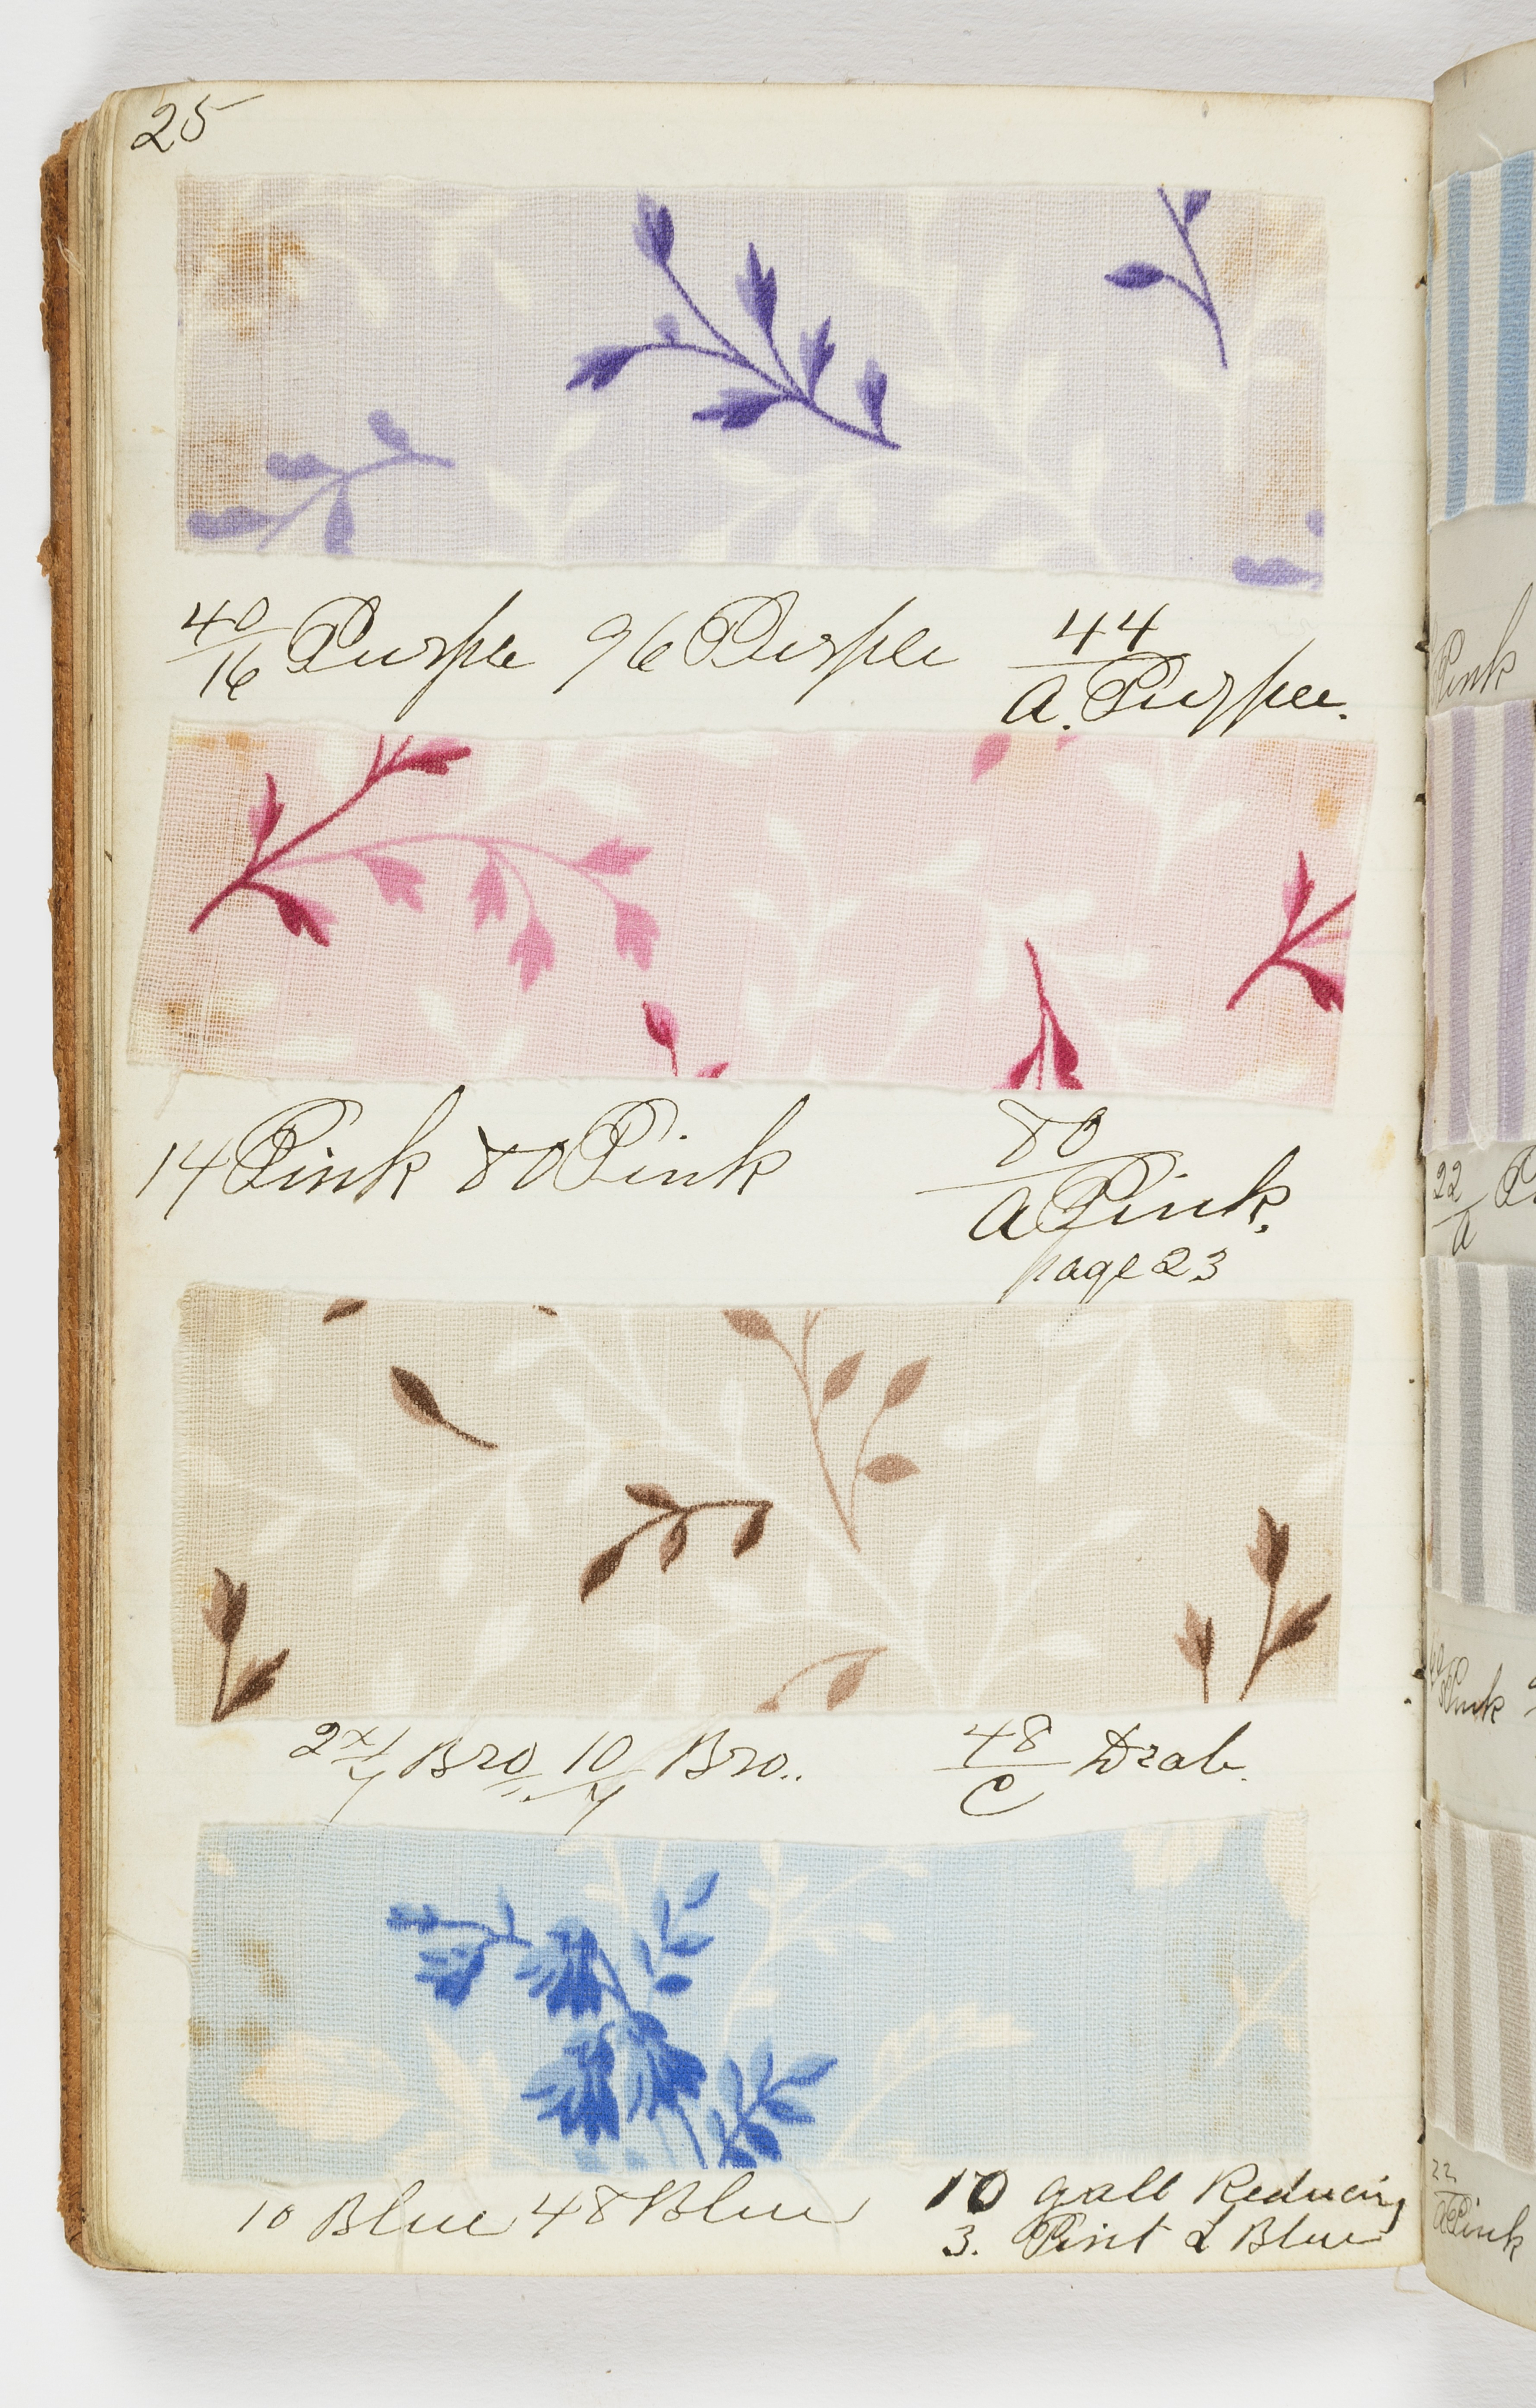 25
40/16 Purple 96 Purple 44/a. Purple.
14 Pink 80 Pink 80/a Pink.
page 23
Bro 10/4 Bro.. 48/C Drab.
10 Blue 48 Blue 10 gall Reducing
3. Pint L Blue
Pink
22/a
Pink
22/a Pink